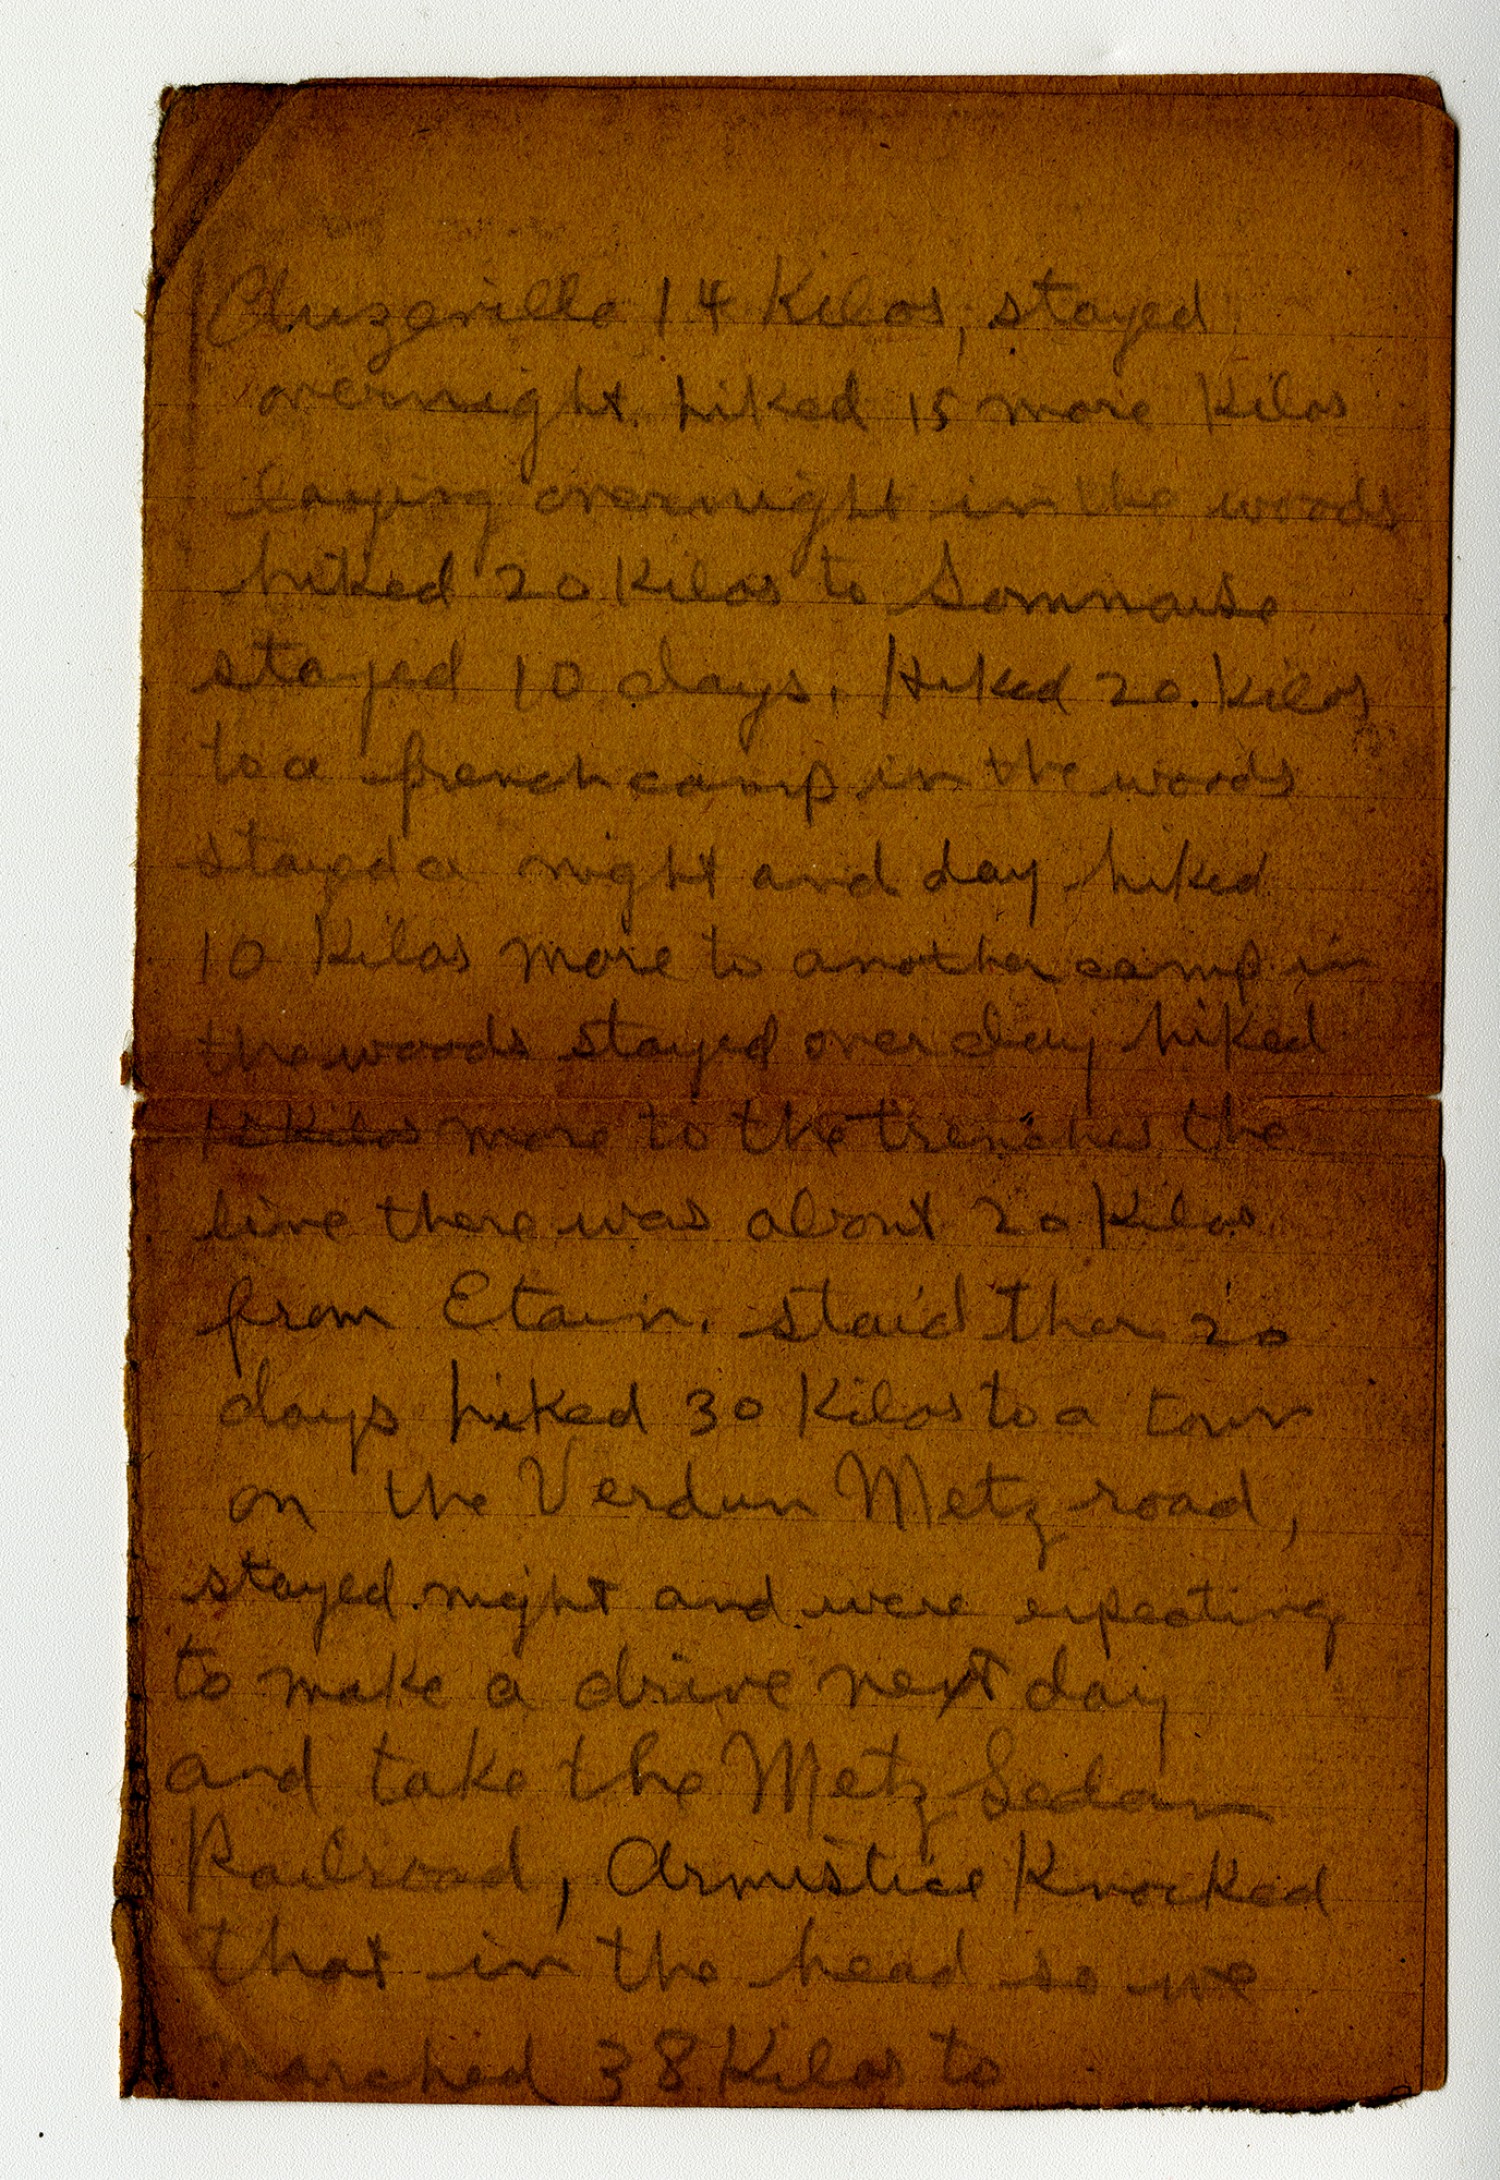 Auzeville 14 Kilos, stayed
overnight. hiked 15 more Kilos
laying overnight in the woods
hiked 20 Kilos to
stayed 10 days. Hiked 20. Kilos
to a french camp in the woods
stayed a night and day hiked
10 Kilos more to another camp in
the woods stayed over day hiked
Kilos more to the trenches the
line there was about 20 Kilos
from Etain. staid ther 20
days hiked 30 Kilos to a town
on the Verdun Metz road,
stayed night and were expecting
to make a drive next day
and take the Metz Sedan
Railroad, Armistice Knocked
that in the head so we
Marched 38 Kilos to